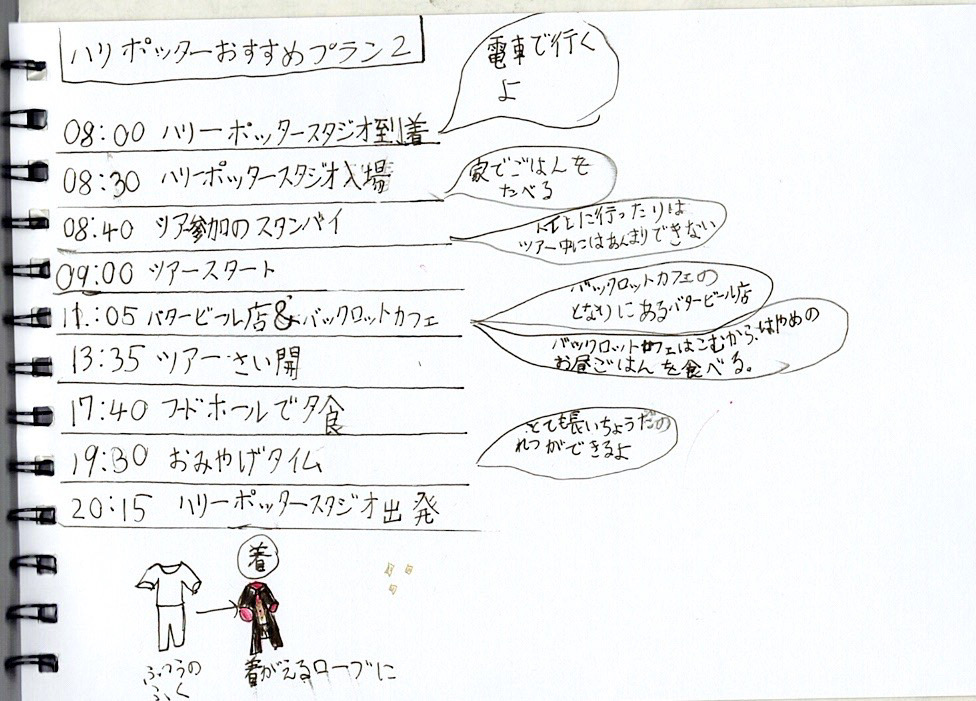 ハリポッターおすすめプラン2
電車で行く
よ
08:00 ハリーポッタースタジオ到着
08:30 ハリーポッタースタジオ入場
家でごはんを
たべる
08:40 ツアー参加のスタンバイ
トイレに行ったりは
ツアー中にはあんまりできない
09:00 ツアースタート
11:05 バタービール店&バックロットカフェ
バックロットカフェの
となりにあるバタービール店
バックロットカフェはこむから、はやめの
お昼ごはんを食べる。
13:35 ツアーさい開
17:40 フードホールで夕食
とても長いちょうだの
れつができるよ
19:30 おみやげタイム
20:15 ハリーポッタースタジオ出発
着
ふつうの
ふく
着がえるローブに